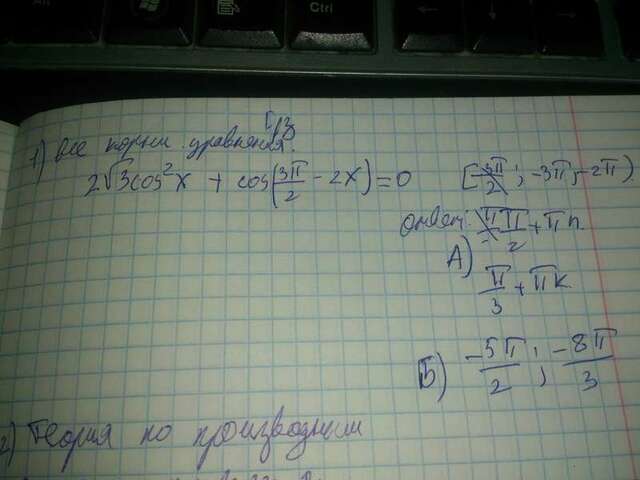 Alt
Ctrl
1) все корни уравнения.
2√3cos²x + cos(3π/2 - 2x) = 0 [-3π; -2π)
ответ:
А) π/2 + πn
π/3 + πk
Б) -5π/2 ; -8π/3
2) Теория по производным